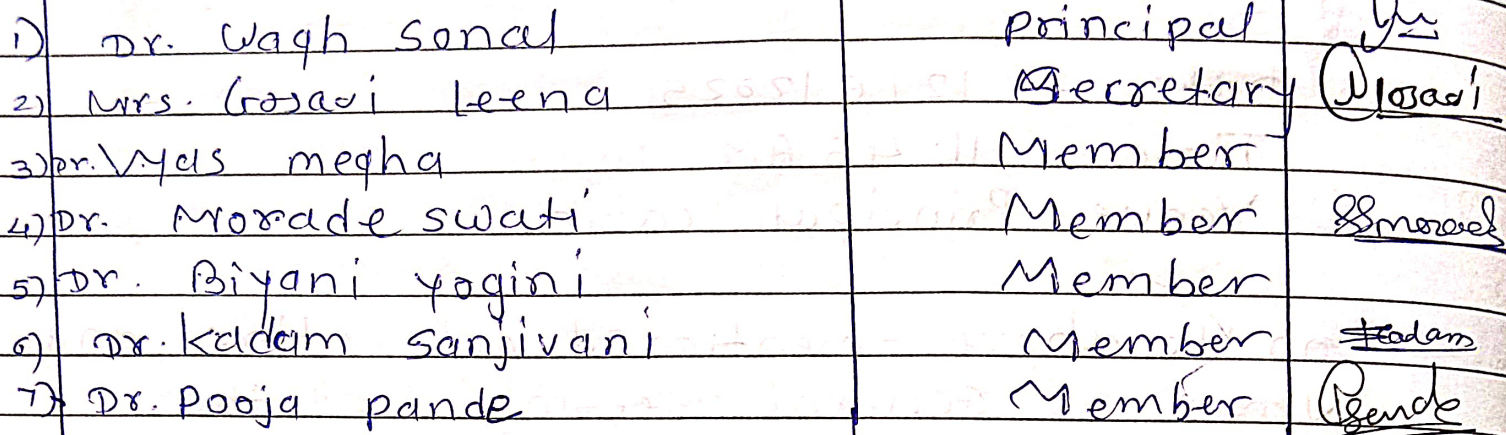 1) Dr. Wagh Sonal principal
2) Mrs. Gosavi leena Secretary Gosavi
3) Dr. Vyas megha Member
4) Dr. Morade swati Member SSmorade
5) Dr. Biyani yogini Member
6) Dr. Kadam Sanjivani Member Kadam
7) Dr. Pooja pande Member Pande